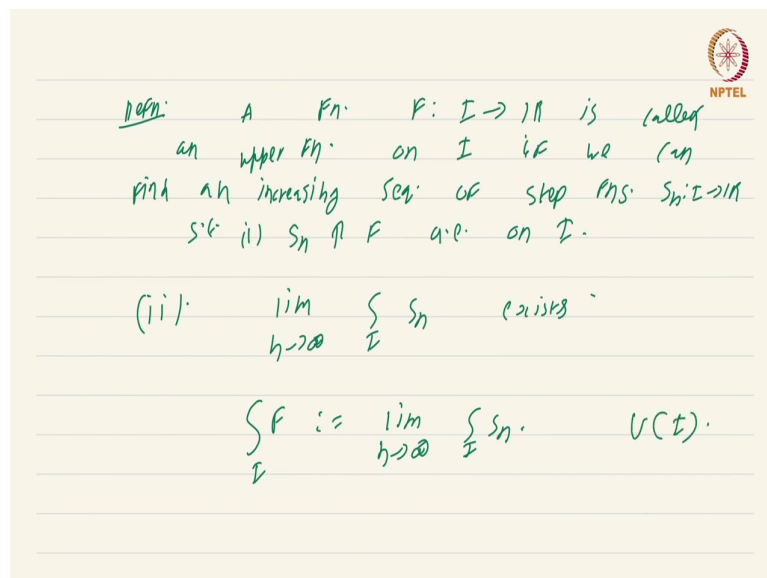 NPTEL
Defn: A Fn. F: I → ℝ is called
an upper Fn. on I if we can
Find an increasing seq. of step Fns. Sn: I → ℝ
s.t. (i) Sn ↑ F a.e. on I.
(ii). lim n→∞ ∫_I Sn exists.
∫_I F := lim n→∞ ∫_I Sn. U(I).